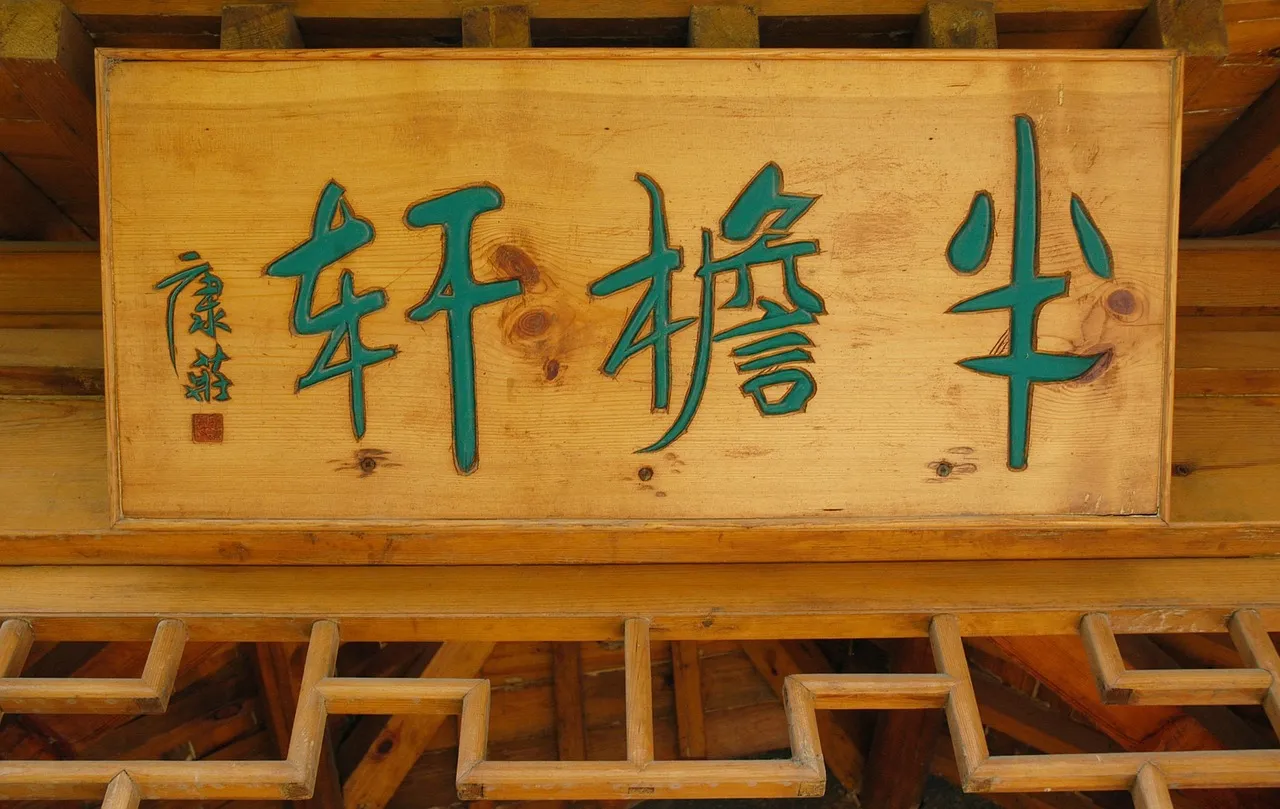 半檐轩
康莊